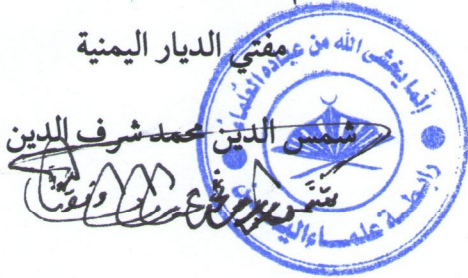 مفتي الديار اليمنية
شمس الدين محمد شرف الدين
إنما يخشى الله من عباده العلماء
رابطة علماء اليمن